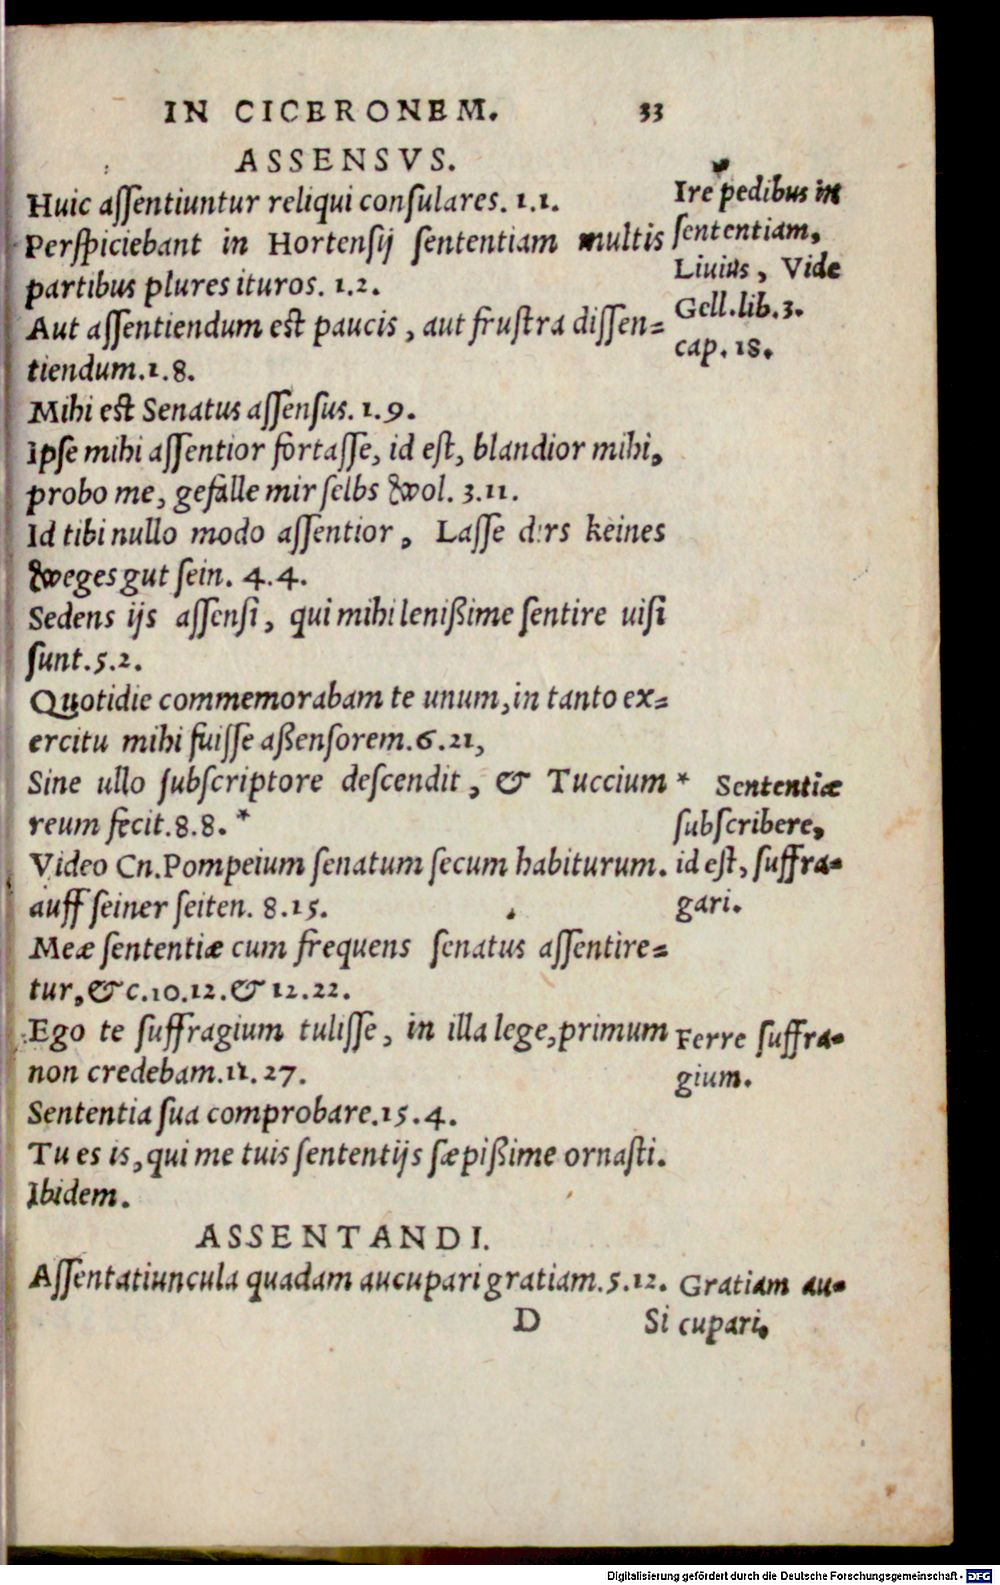 IN CICERONEM. 33
ASSENSVS.
Huic assentiuntur reliqui consulares. 1.1.
Perspiciebant in Hortensij sententiam multis
partibus plures ituros. 1.2.
Aut assentiendum est paucis, aut frustra dissen=
tiendum.1.8.
Mihi est Senatus assensus. 1.9.
Ipse mihi assentior fortasse, id est, blandior mihi,
probo me, gefalle mir selbs wol. 3.11.
Id tibi nullo modo assentior, Lasse dirs keines
weges gut sein. 4.4.
Sedens ijs assensi, qui mihi lenißime sentire uisi
sunt.5.2.
Quotidie commemorabam te unum, in tanto ex=
ercitu mihi fuisse aßensorem.6.21,
Sine ullo subscriptore descendit, & Tuccium
reum fecit.8.8. *
Video Cn.Pompeium senatum secum habiturum.
auff seiner seiten. 8.15.
Meæ sententiæ cum frequens senatus assentire=
tur,&c.10.12.& 12.22.
Ego te suffragium tulisse, in illa lege,primum
non credebam.11.27.
Sententia sua comprobare.15.4.
Tu es is, qui me tuis sententijs sæpißime ornasti.
Ibidem.
ASSENTANDI.
Assentatiuncula quadam aucupari gratiam.5.12.
D Si
Ire pedibus in
sententiam,
Liuius, Vide
Gell.lib.3.
cap. 18.
* Sententiæ
subscribere,
id est, suffra=
gari.
Ferre suffra=
gium.
Gratiam au=
cupari.
Digitalisierung gefördert durch die Deutsche Forschungsgemeinschaft - DFG